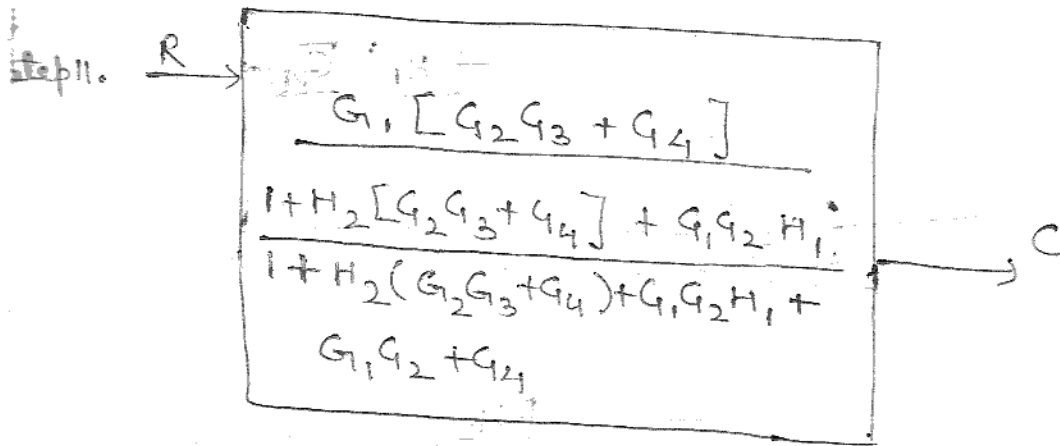 Step 11. R
G₁ [G₂G₃ + G₄]
1 + H₂[G₂G₃ + G₄] + G₁G₂ H₁
1 + H₂(G₂G₃ + G₄) + G₁G₂H₁ +
G₁G₂ + G₄
C